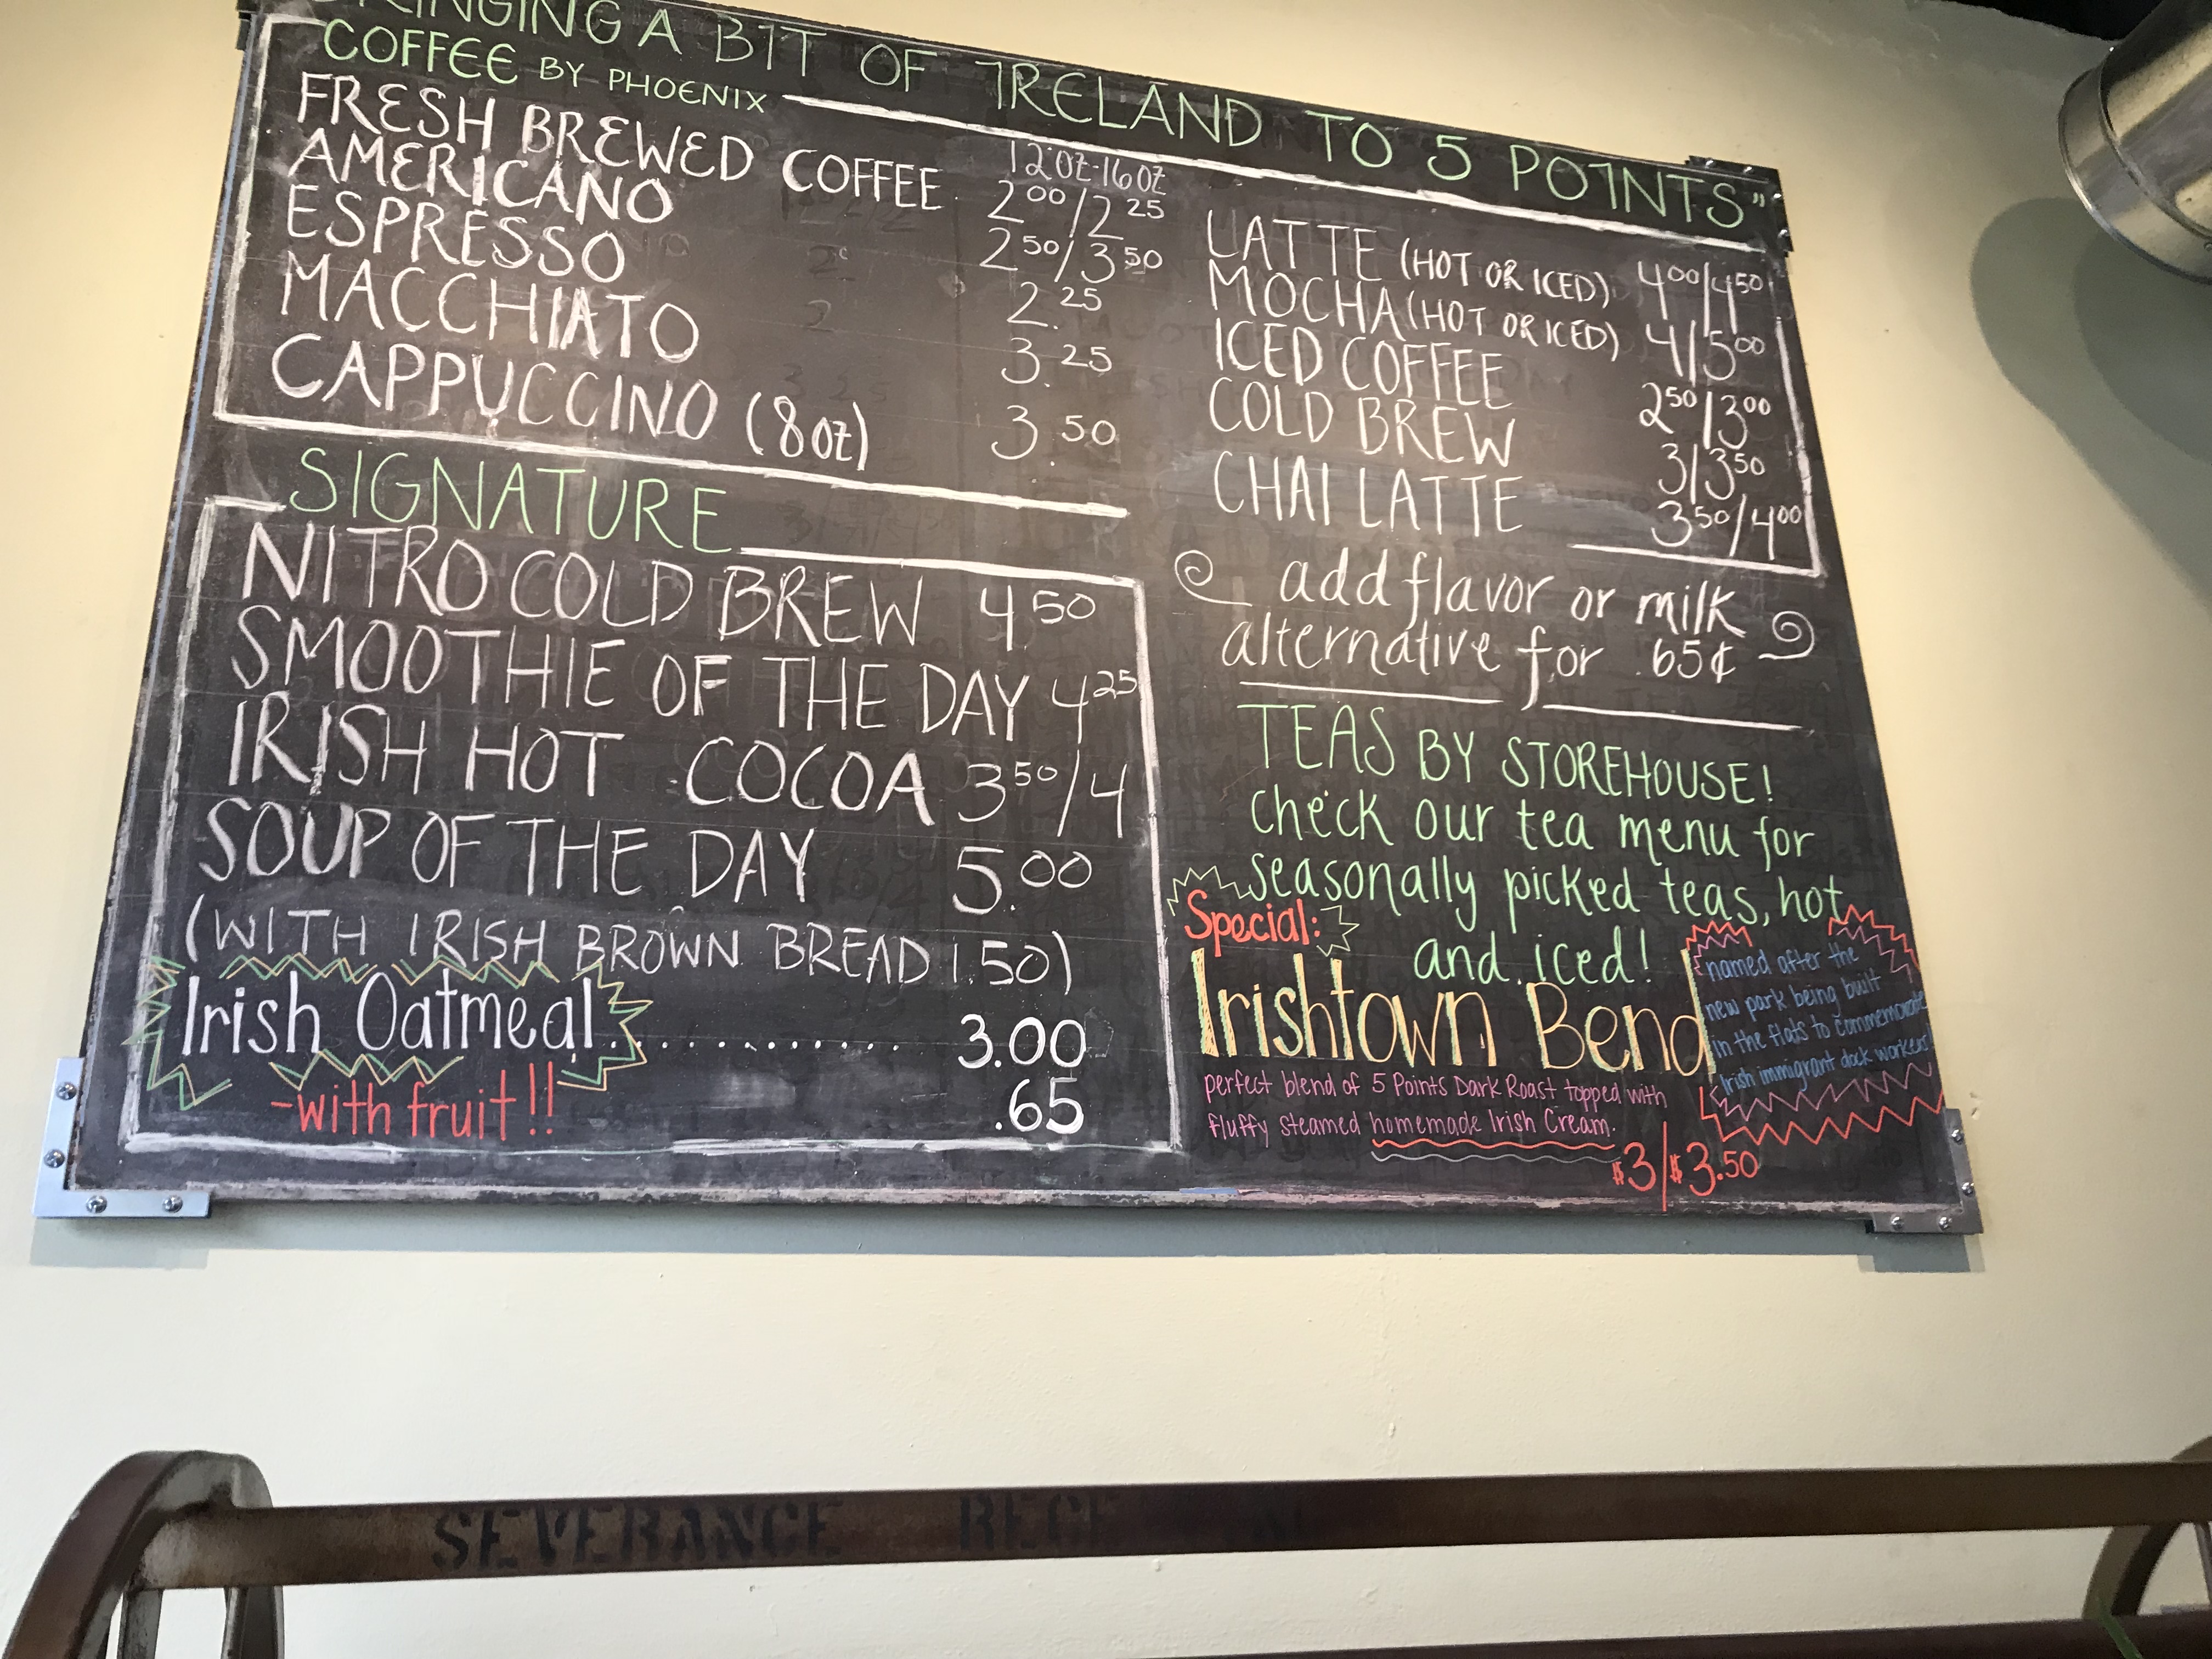 BRINGING A BIT OF IRELAND TO 5 POINTS"
COFFEE BY PHOENIX
12OZ-16OZ
FRESH BREWED COFFEE 2.00/2.25
AMERICANO 2.50/3.50
ESPRESSO 2.25
MACCHIATO 3.25
CAPPUCCINO (8OZ) 3.50
LATTE (HOT OR ICED) 4.00/4.50
MOCHA (HOT OR ICED) 4/5.00
ICED COFFEE 2.50/3.00
COLD BREW 3/3.50
CHAI LATTE 3.50/4.00
add flavor or milk
alternative for .65¢
SIGNATURE
NITRO COLD BREW 4.50
SMOOTHIE OF THE DAY 4.25
IRISH HOT COCOA 3.50/4
SOUP OF THE DAY 5.00
(WITH IRISH BROWN BREAD 1.50)
Irish Oatmeal ............... 3.00
-with fruit!! .65
TEAS BY STOREHOUSE!
check our tea menu for
seasonally picked teas, hot
and iced!
Special:
Irishtown Bend
named after the
new park being built
in the flats to commemorate
Irish immigrant dock workers!
perfect blend of 5 Points Dark Roast topped with
fluffy steamed homemade Irish Cream.
$3/$3.50
SEVERANCE